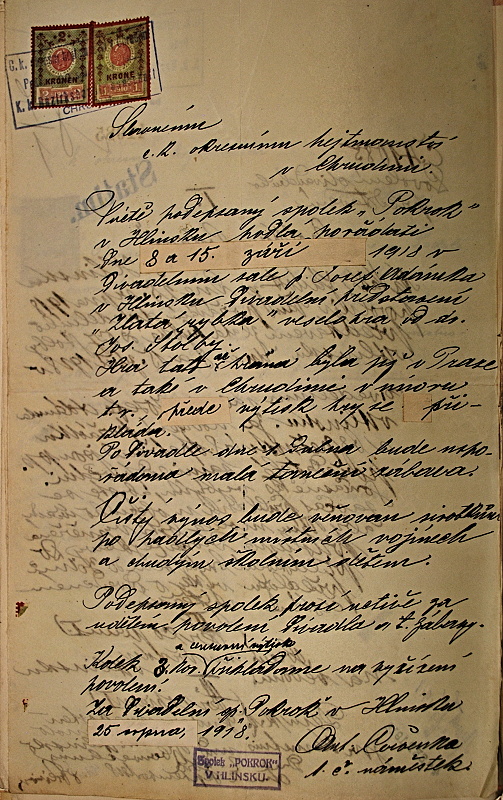 2 KRONEN 2
1 KRONE 1
Slavnému
c. k. okresnímu hejtmanství
v Chrudimi.
Uctě podepsaný spolek „Pokrok“
v Hlinsku hodlá pořádati
Dne 8 a 15. září 1918 v
Divadelním sále p. Josef Adámka
v Hlinsku Divadelní představení
„Zlatá rybka“ veselohra od dr.
Jos. Štolby.
Hra tato hrána byla již v Praze
a také v Chrudimi v únoru
t.r. výtisk hry se při-
kládá.
Po Divadle dne bude uspo-
řádána malá taneční zábava.
Čistý výnos bude věnován sirotkům
po padlých místních vojínech
a chudým školním dětem.
Podepsaný spolek prosí uctivě za
udělení povolení Divadla a t. zábavy.
a cenzurní výtisk
Kolek 3 kor. přikládáme na vyřízení
povolení.
Za Divadelní sp. Pokrok v Hlinsku
25 srpna, 1918.
Ant. Červenka
t. č. náměstek.
Spolek „POKROK“
V HLINSKU.